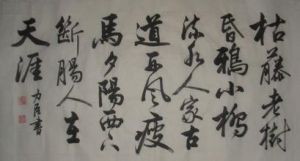 枯藤老樹
昏鴉小橋
流水人家古
道西風瘦
馬夕陽西下
斷腸人在
天涯
書